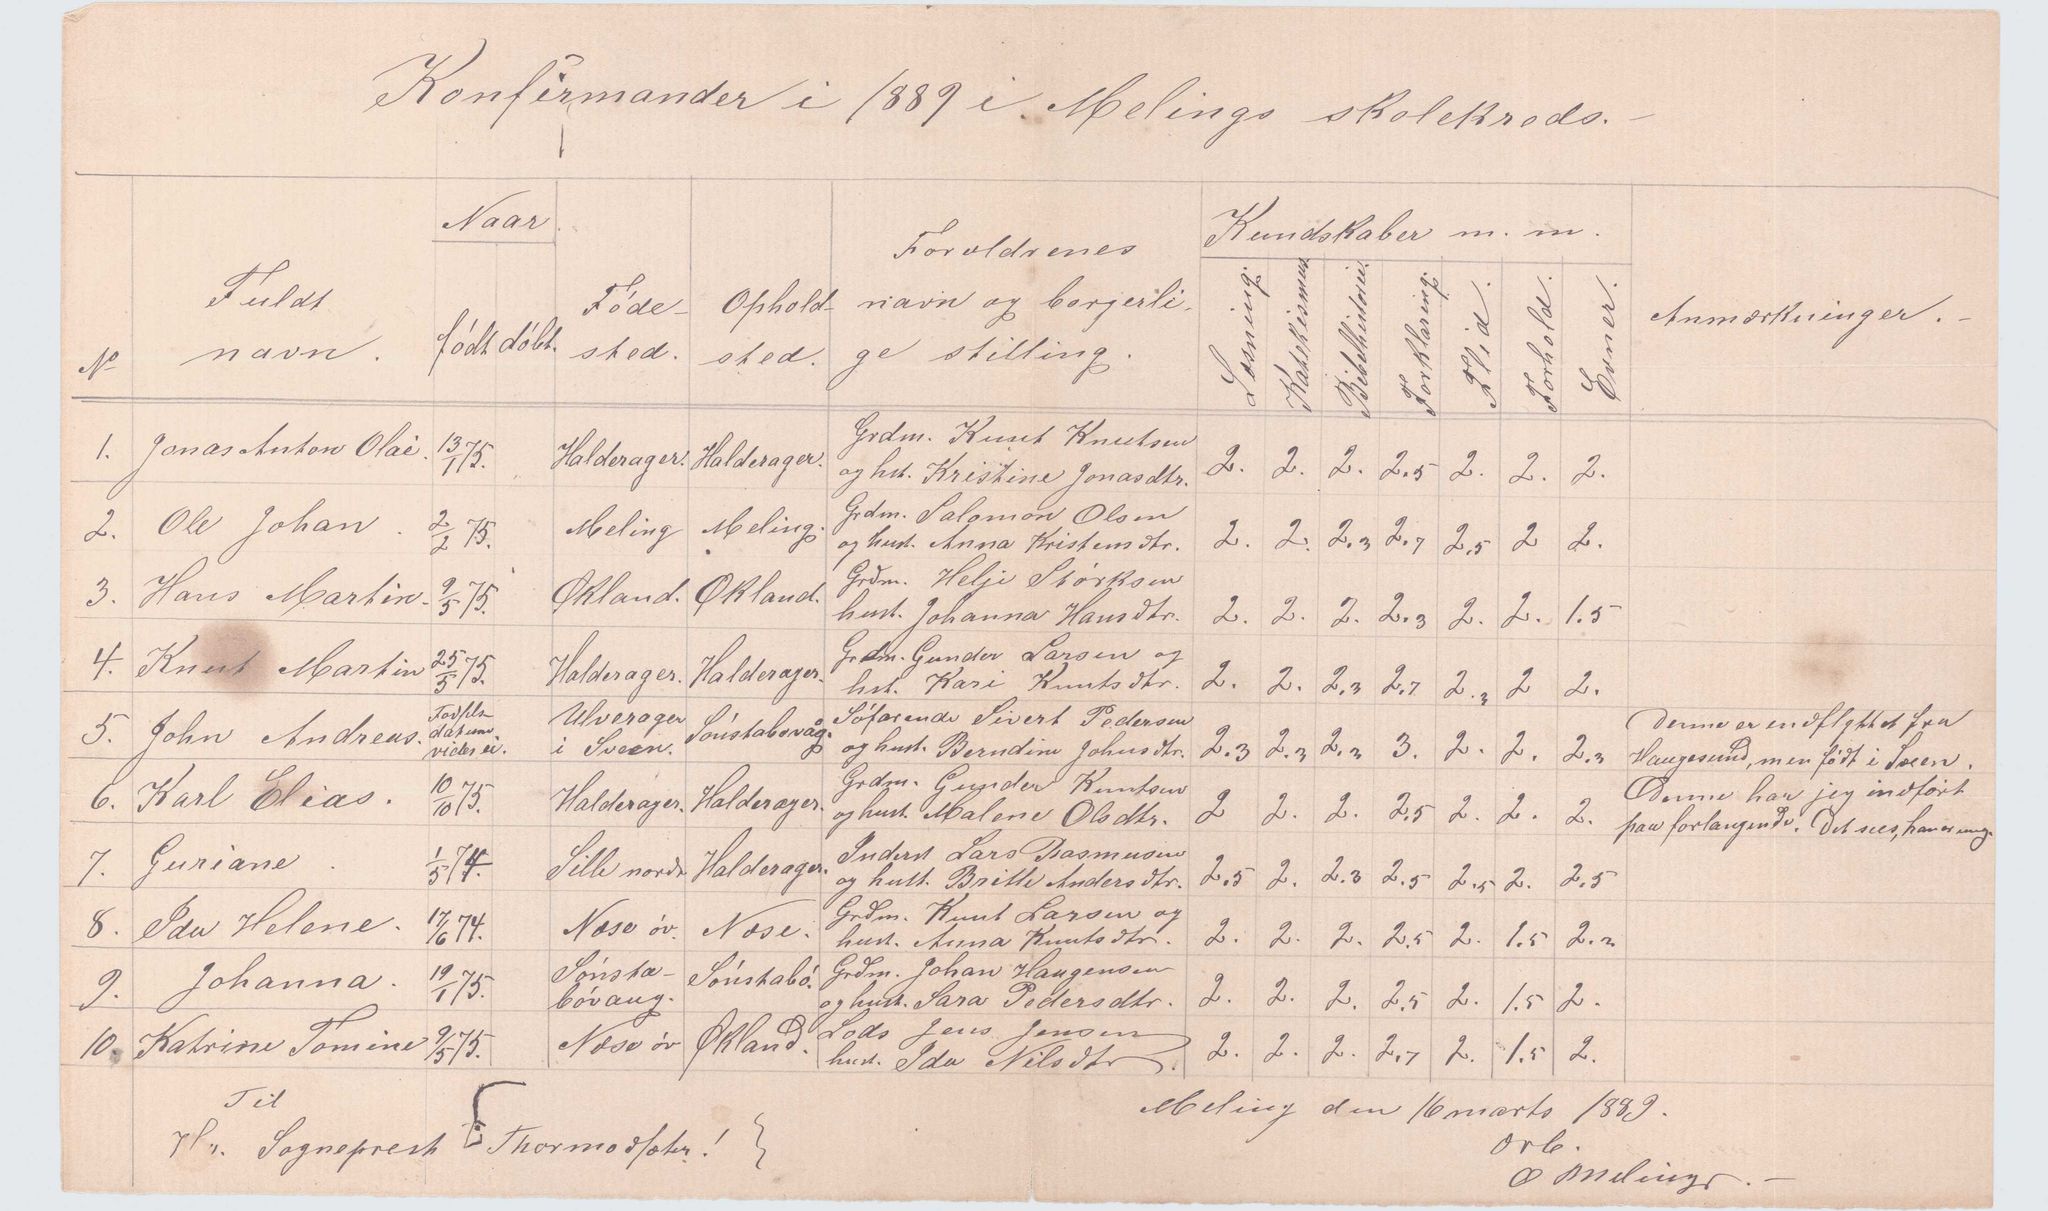 Konfirmander i 1889 i Melings skolekreds.
No
Fuldt
navn.
Naar
født
døbt.
Føde-
sted.
Ophold-
sted.
Foroldrenes
navn og borgerli-
ge stilling.
Kundskaber m. m.
Læsning.
Katekismus
Bibelhistorie.
Forklaring.
Flid.
Forhold.
Evner.
Anmærkninger.
1. Jonas Anton Olai. 13/1 75. Halderager. Halderager. Grdm. Knut Knutsen
og hst. Kristine Jonasdtr. 2. 2. 2. 2.5 2. 2. 2.
2. Ole Johan. 2/2 75. Meling Meling. Grdm. Salomon Olsen
og hust. Anna Kristensdtr. 2. 2. 2.3 2.7 2.5 2 2.
3. Hans Martin. 9/5 75. Økland. Økland. Grdm. Helje Størksen
hust. Johanna Hansdtr. 2. 2. 2. 2.3 2. 2. 1.5
4. Knut Martin 25/5 75. Halderager. Halderager. Grdm. Gunder Larsen og
hst. Kari Knutsdtr. 2. 2. 2.3 2.7 2.3 2 2.
5. John Andreas. Fødsels
datum
vides ei. Ulverager
i Sveen. Sønstabøvåg. Søfarende Sivert Pedersen
og hust. Berndine Johnsdtr. 2.3 2.3 2.3 3. 2. 2. 2.3 Denne er indflyttet fra
Haugesund, men født i Sveen.
6. Karl Elias. 10/10 75. Halderager. Halderager. Grdm. Gunder Knutsen
og hust. Malene Olsdtr. 2 2. 2. 2.5 2. 2. 2. Denne har jeg indført
paa forlangende. Det sees, han er ung.
7. Guriane. 1/5 74. Sille nordr Halderager. Inderst Lars Rasmusen
og hust. Britte Andersdtr. 2.5 2. 2.3 2.5 2.5 2. 2.5
8. Ida Helene. 17/6 74. Næse øv. Næse. Grdm. Knut Larsen og
hust. Anna Knutsdtr. 2. 2. 2. 2.5 2. 1.5 2.3
9. Johanna. 19/1 75. Sønsta-
bøvaag. Sønstabø. Grdm. Johan Haugensen
og hust. Sara Pedersdtr. 2. 2. 2. 2.5 2. 1.5 2.
10. Katrine Tomine 9/5 75. Næse øv Økland. Lods Jens Jensen
hust. Ida Nilsdtr. 2. 2. 2. 2.7 2. 1.5 2.
Til
Hr. Sogneprest Thormodsæter!
Meling den 16 marts 1889.
Ørb.
O Melings.